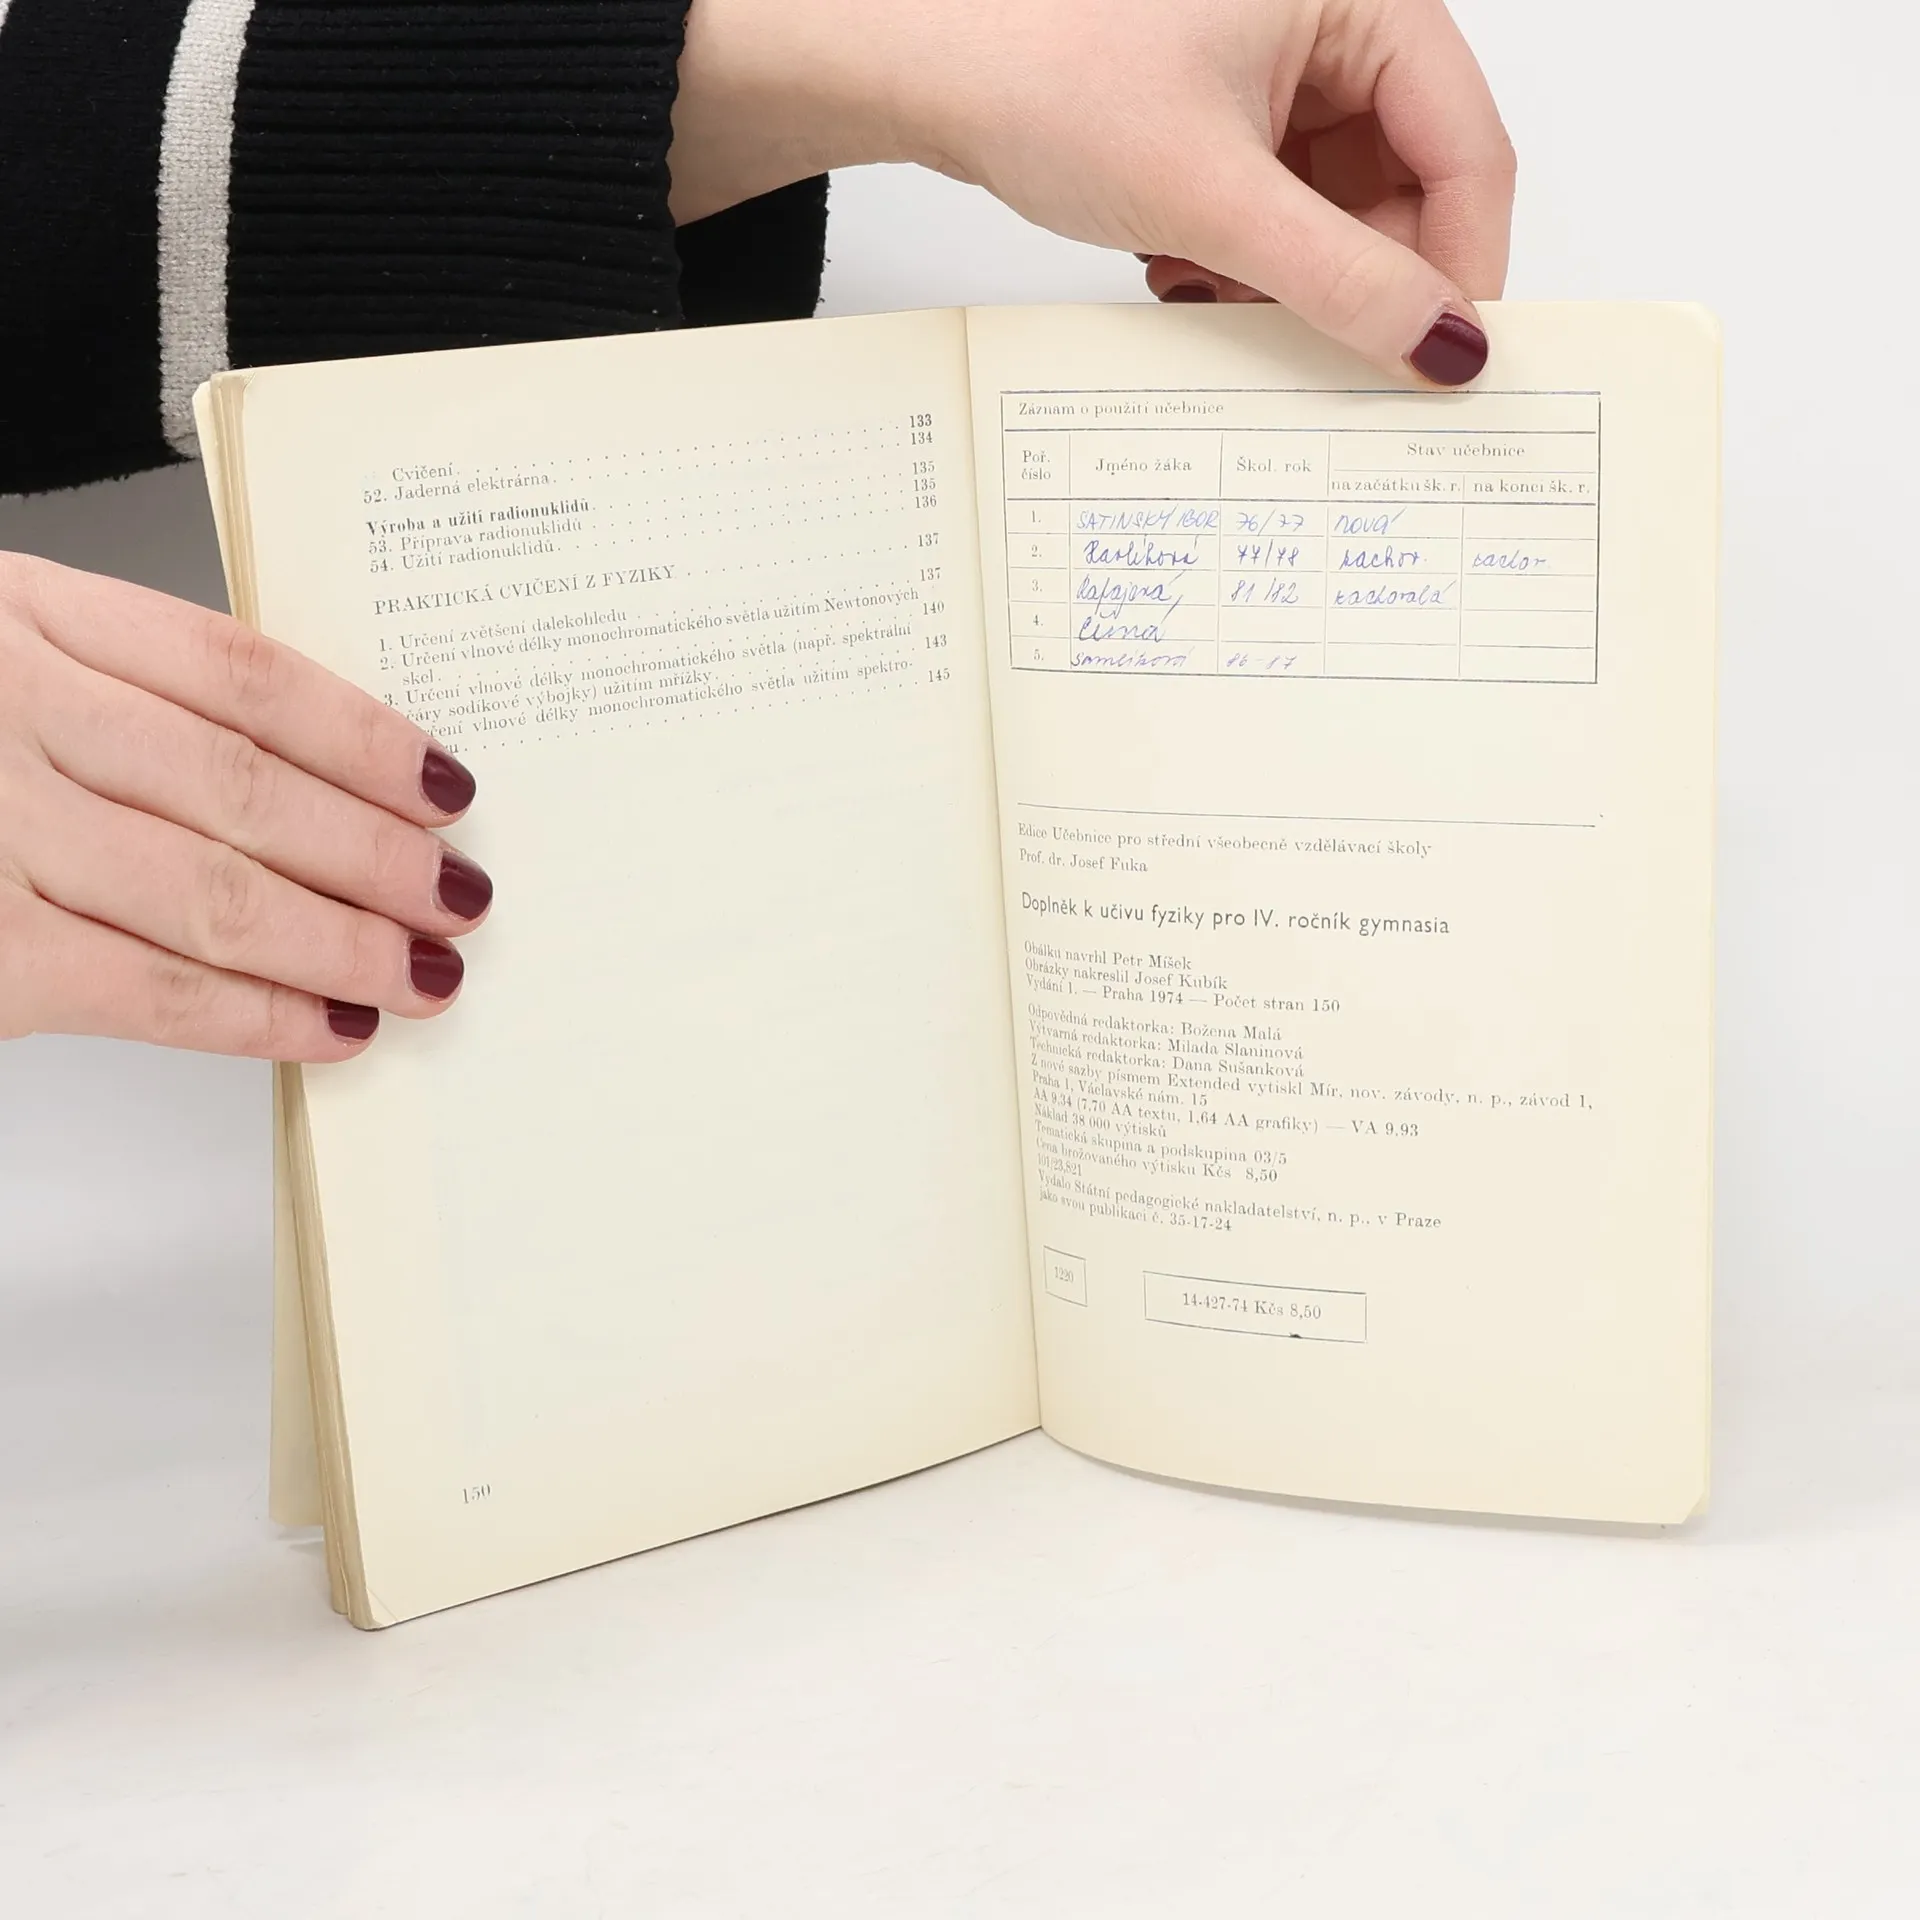 Cvičení. 133
52. Jaderná elektrárna. 134
Výroba a užití radionuklidů. 135
53. Příprava radionuklidů 135
54. Užití radionuklidů. 136
PRAKTICKÁ CVIČENÍ Z FYZIKY 137
1. Určení zvětšení dalekohledu 137
2. Určení vlnové délky monochromatického světla užitím Newtonových
skel. 140
3. Určení vlnové délky monochromatického světla (např. spektrální
čáry sodíkové výbojky) užitím mřížky. 143
určení vlnové délky monochromatického světla užitím spektro-
145
150
Záznam o použití učebnice
Poř. číslo Jméno žáka Škol. rok Stav učebnice
na začátku šk. r. na konci šk. r.
1. SATINSKÝ IGOR 76/77 nová
2. 77/78 zachov. zachov
3. 81/82 zachovalá
4.
5. 86-87
Edice Učebnice pro střední všeobecně vzdělávací školy
Prof. dr. Josef Fuka
Doplněk k učivu fyziky pro IV. ročník gymnasia
Obálku navrhl Petr Míšek
Obrázky nakreslil Josef Kubík
Vydání 1. — Praha 1974 — Počet stran 150
Odpovědná redaktorka: Božena Malá
Výtvarná redaktorka: Milada Slaninová
Technická redaktorka: Dana Sušanková
Z nové sazby písmem Extended vytiskl Mír, nov. závody, n. p., závod 1,
Praha 1, Václavské nám. 15
AA 9,34 (7,70 AA textu, 1,64 AA grafiky) — VA 9,93
Náklad 38 000 výtisků
Tematická skupina a podskupina 03/5
Cena brožovaného výtisku Kčs 8,50
101/23,821
Vydalo Státní pedagogické nakladatelství, n. p., v Praze
jako svou publikaci č. 35-17-24
1220
14-427-74 Kčs 8,50